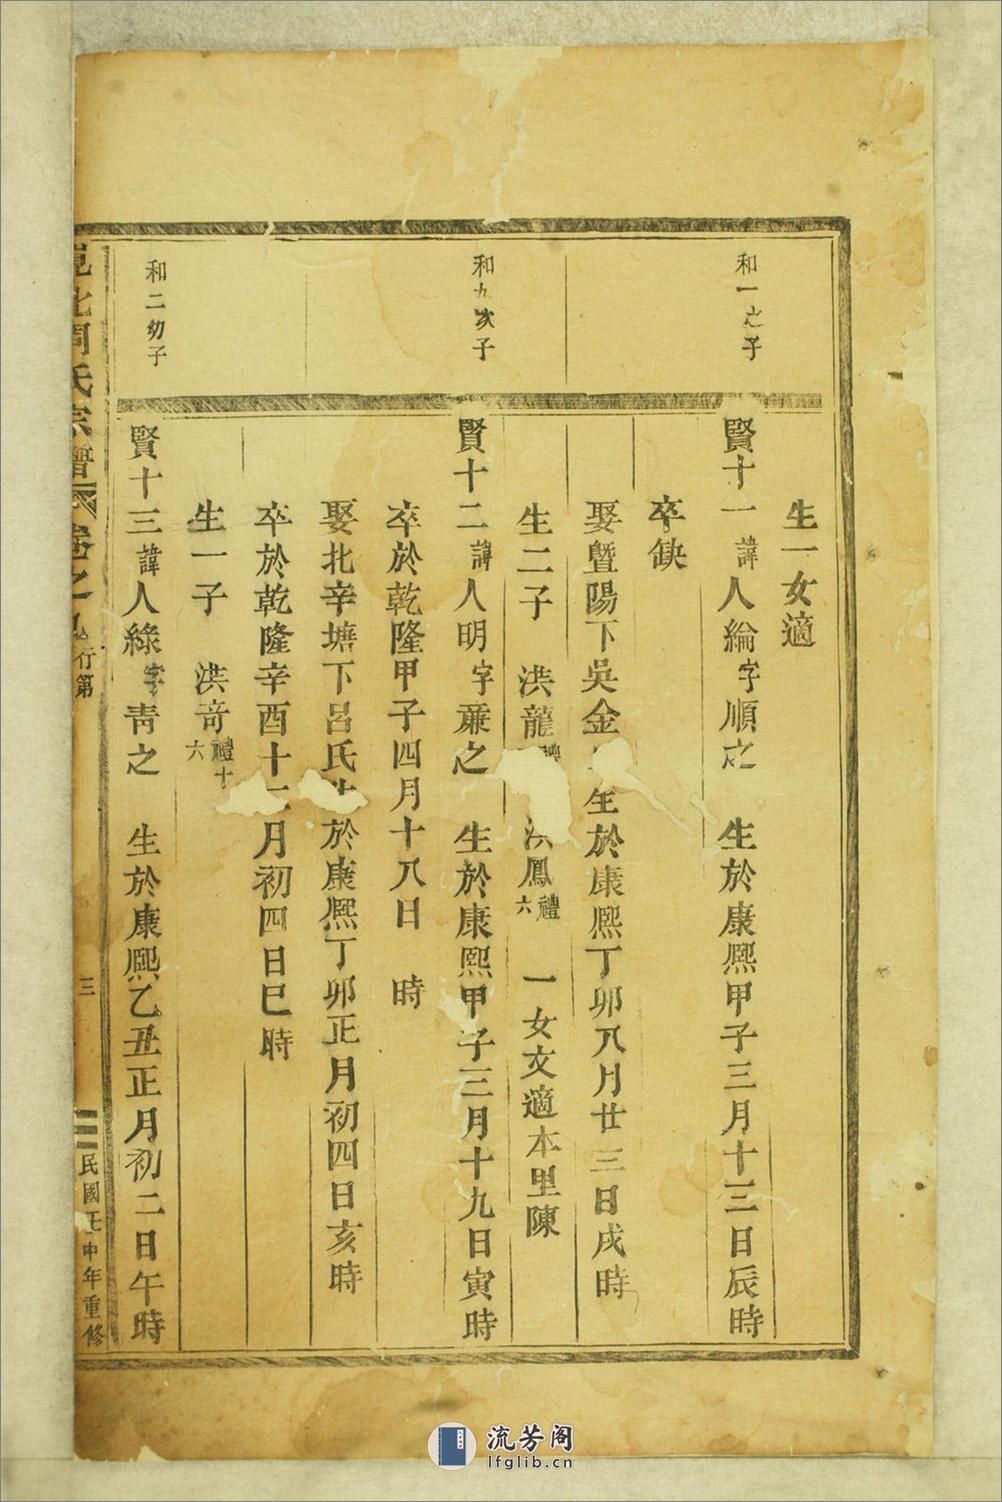 生一女適
和一之子
賢十一諱人綸字順之 生於康熙甲子三月十三日辰時
卒缺
娶暨陽下吳金 生於康熙丁卯八月廿三日戌時
生二子 洪龍 洪鳳禮六 一女文適本里陳
和九次子
賢十二諱人明字蒹之 生於康熙甲子三月十九日寅時
卒於乾隆甲子四月十八日 時
娶北辛塘下呂氏生於康熙丁卯正月初四日亥時
卒於乾隆辛酉十二月初四日巳時
生一子 洪奇禮十六
和二幼子
賢十三諱人綠字靑之 生於康熙乙丑正月初二日午時
北周氏宗譜 卷之 行第 三 民國壬申年重修
流芳阁
lfglib.cn